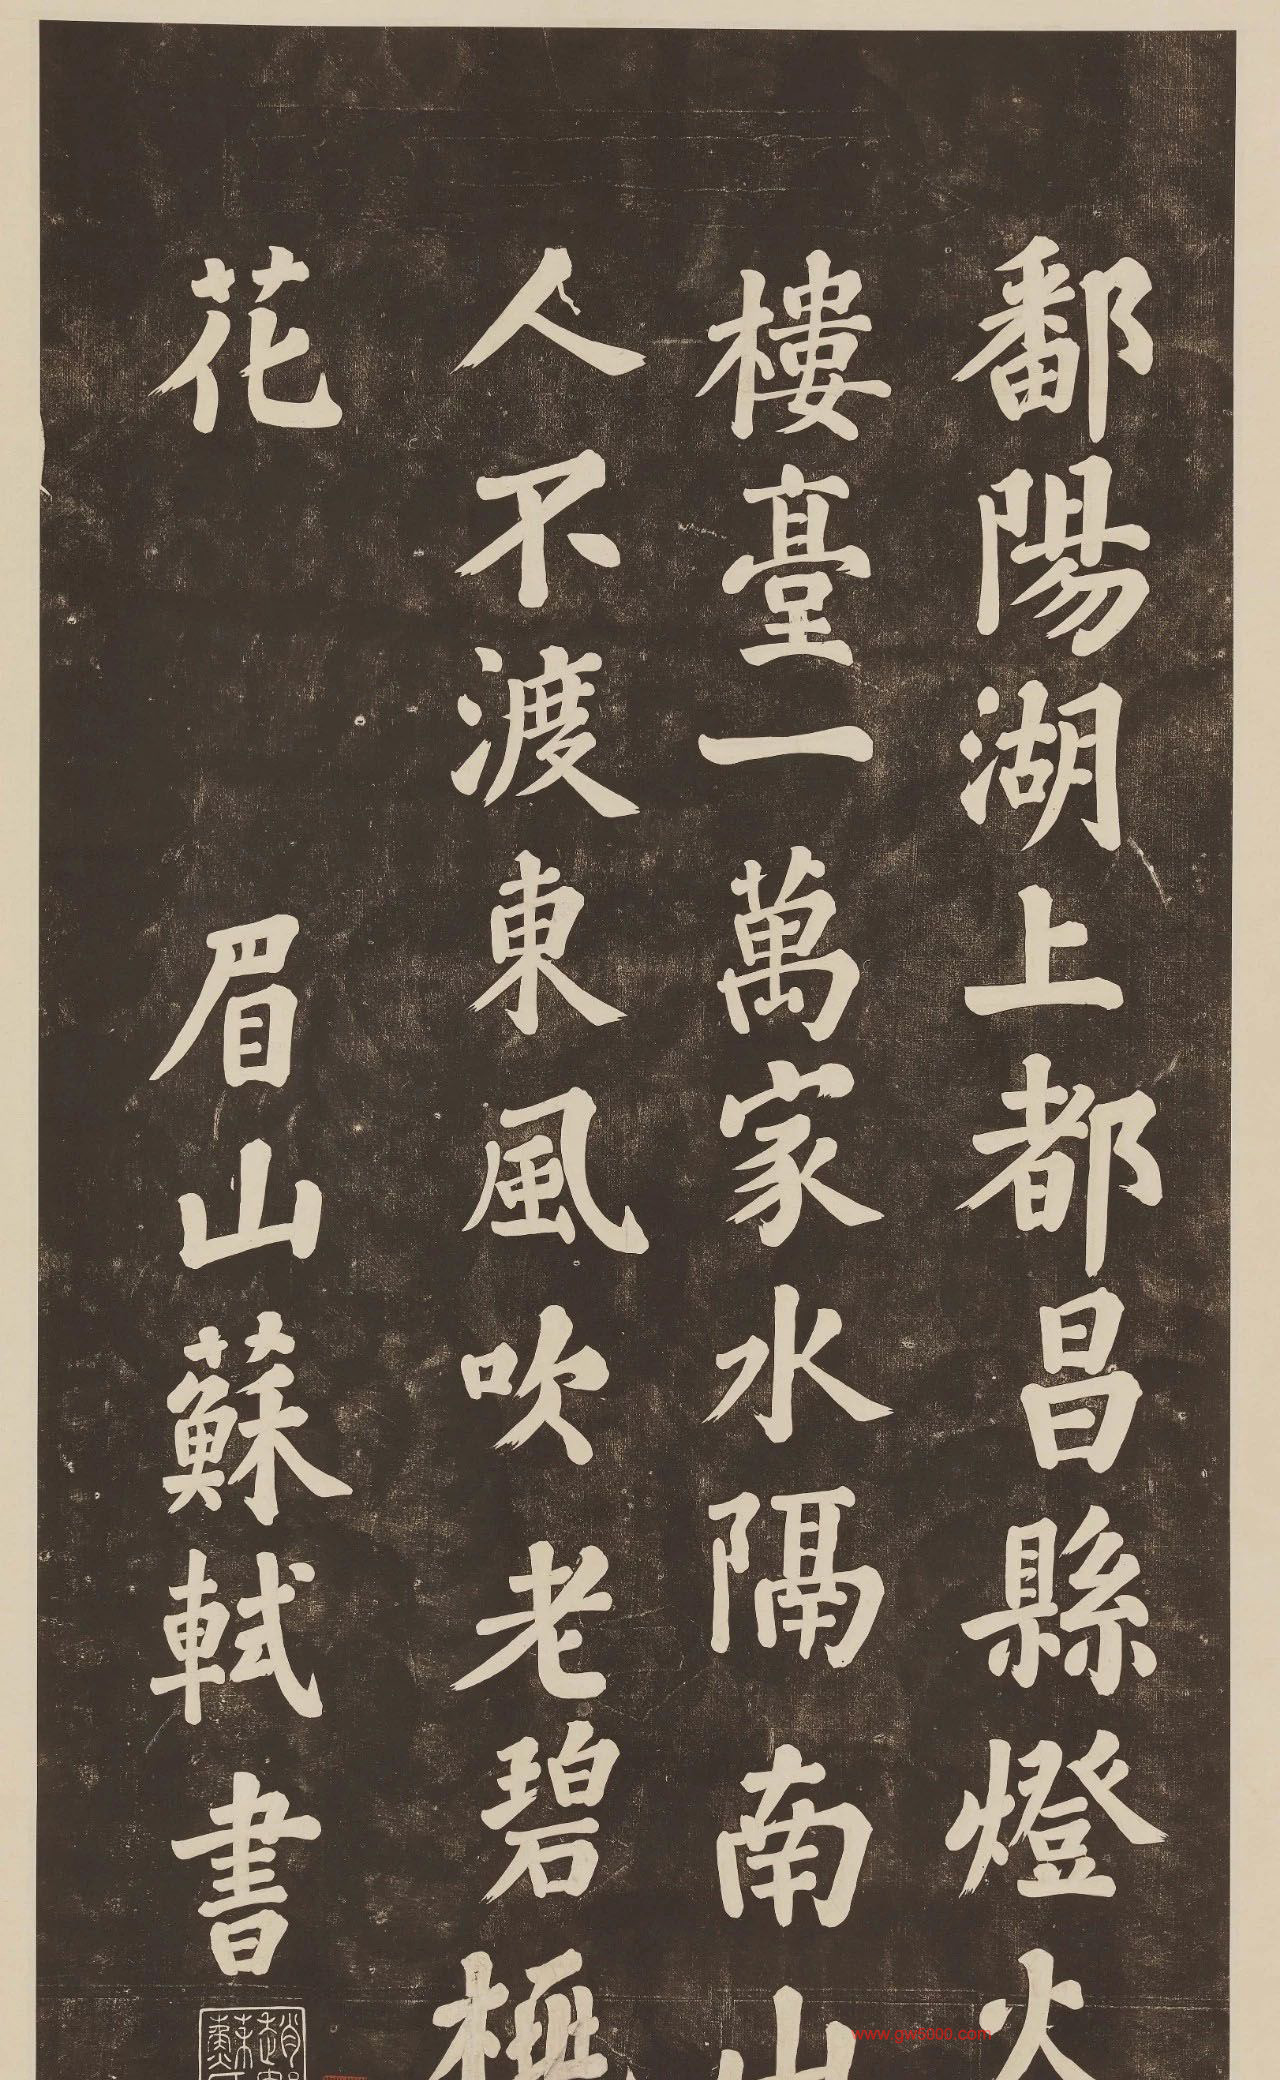 鄱陽湖上都昌縣燈火
樓臺一萬家水隔南山
人不渡東風吹老碧桃
花
眉山蘇軾書
www.gw5000.com